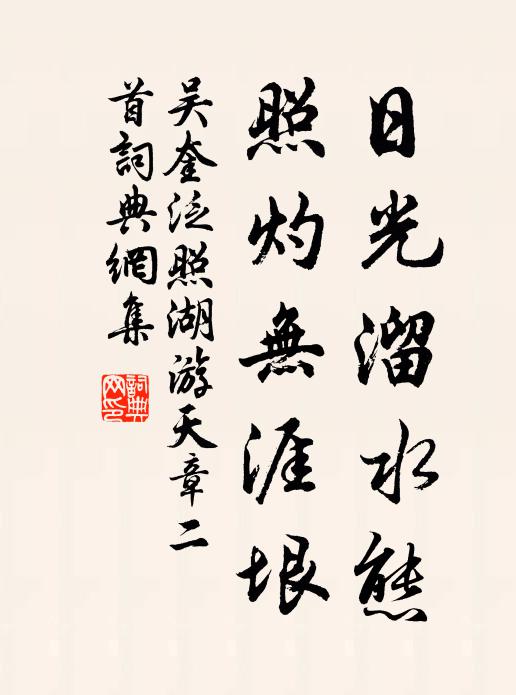 日光溜水態
照灼無涯垠
吳奎泛照湖游天章二
首詞典網集
詞典
網印